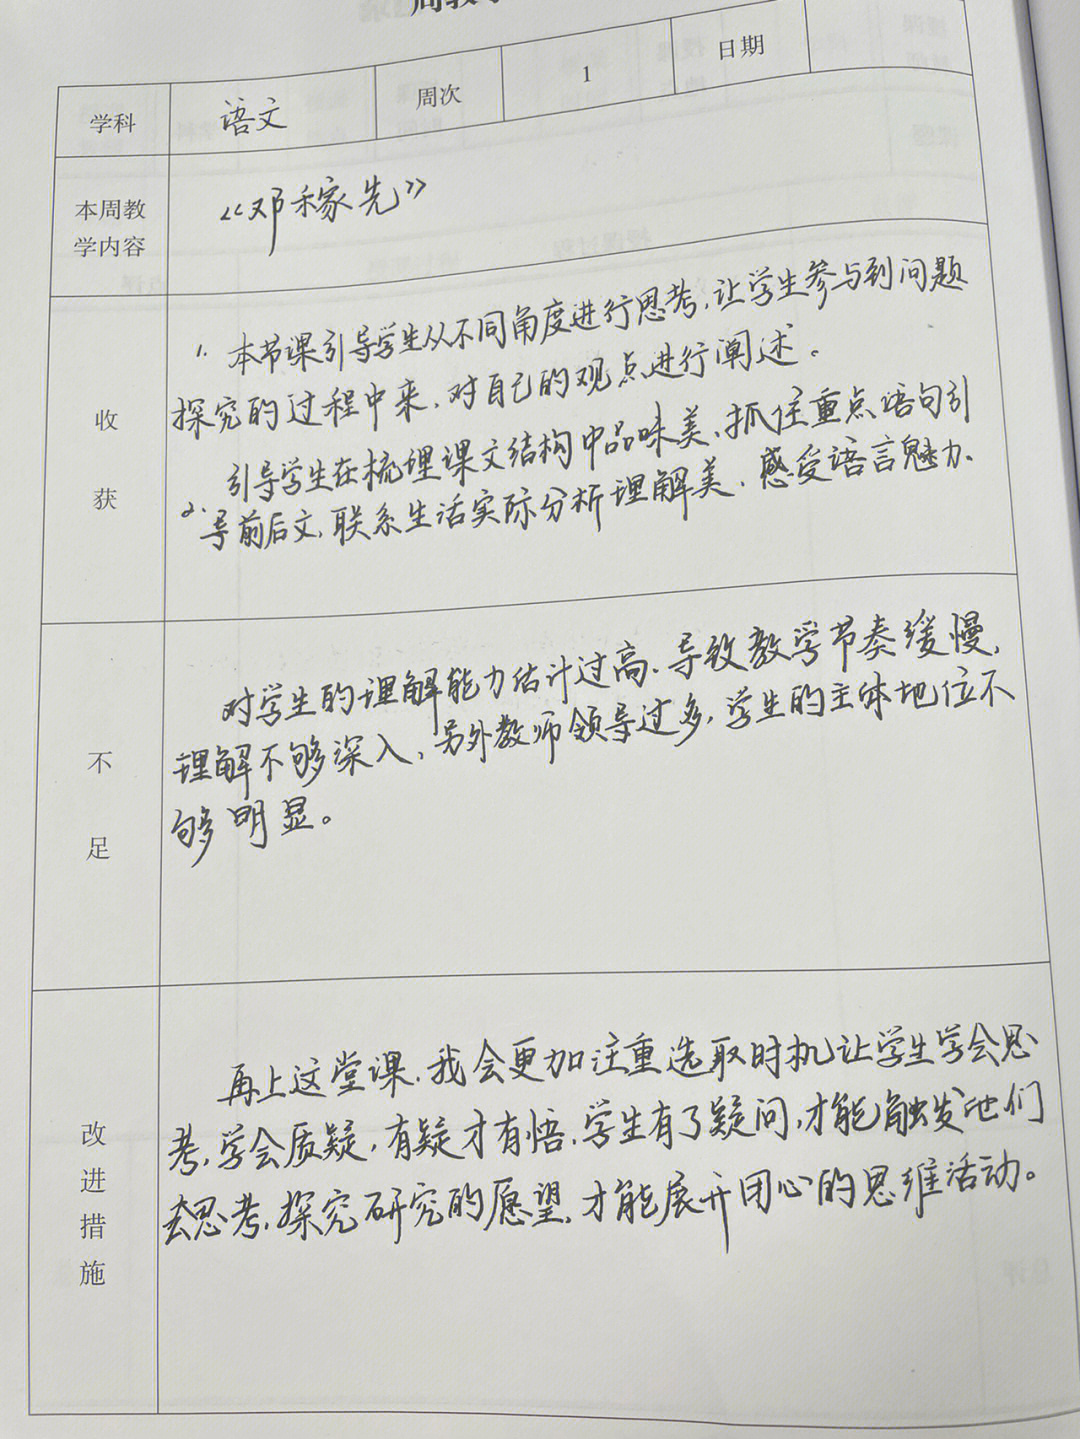 周教学
学科 语文 周次 1 日期
本周教 《邓稼先》
学内容
收
获
1. 本节课引导学生从不同角度进行思考,让学生参与到问题
探究的过程中来,对自己的观点进行阐述。
引导学生在梳理课文结构中品味美,抓住重点语句引
2. 导前后文,联系生活实际分析理解美,感受语言魅力.
不
足
对学生的理解能力估计过高,导致教学节奏缓慢,
理解不够深入,另外教师领导过多,学生的主体地位不
够明显。
改
进
措
施
再上这堂课,我会更加注重选取时机让学生学会思
考,学会质疑,有疑才有悟,学生有了疑问,才能触发他们
去思考,探究研究的愿望,才能展开团心的思维活动。